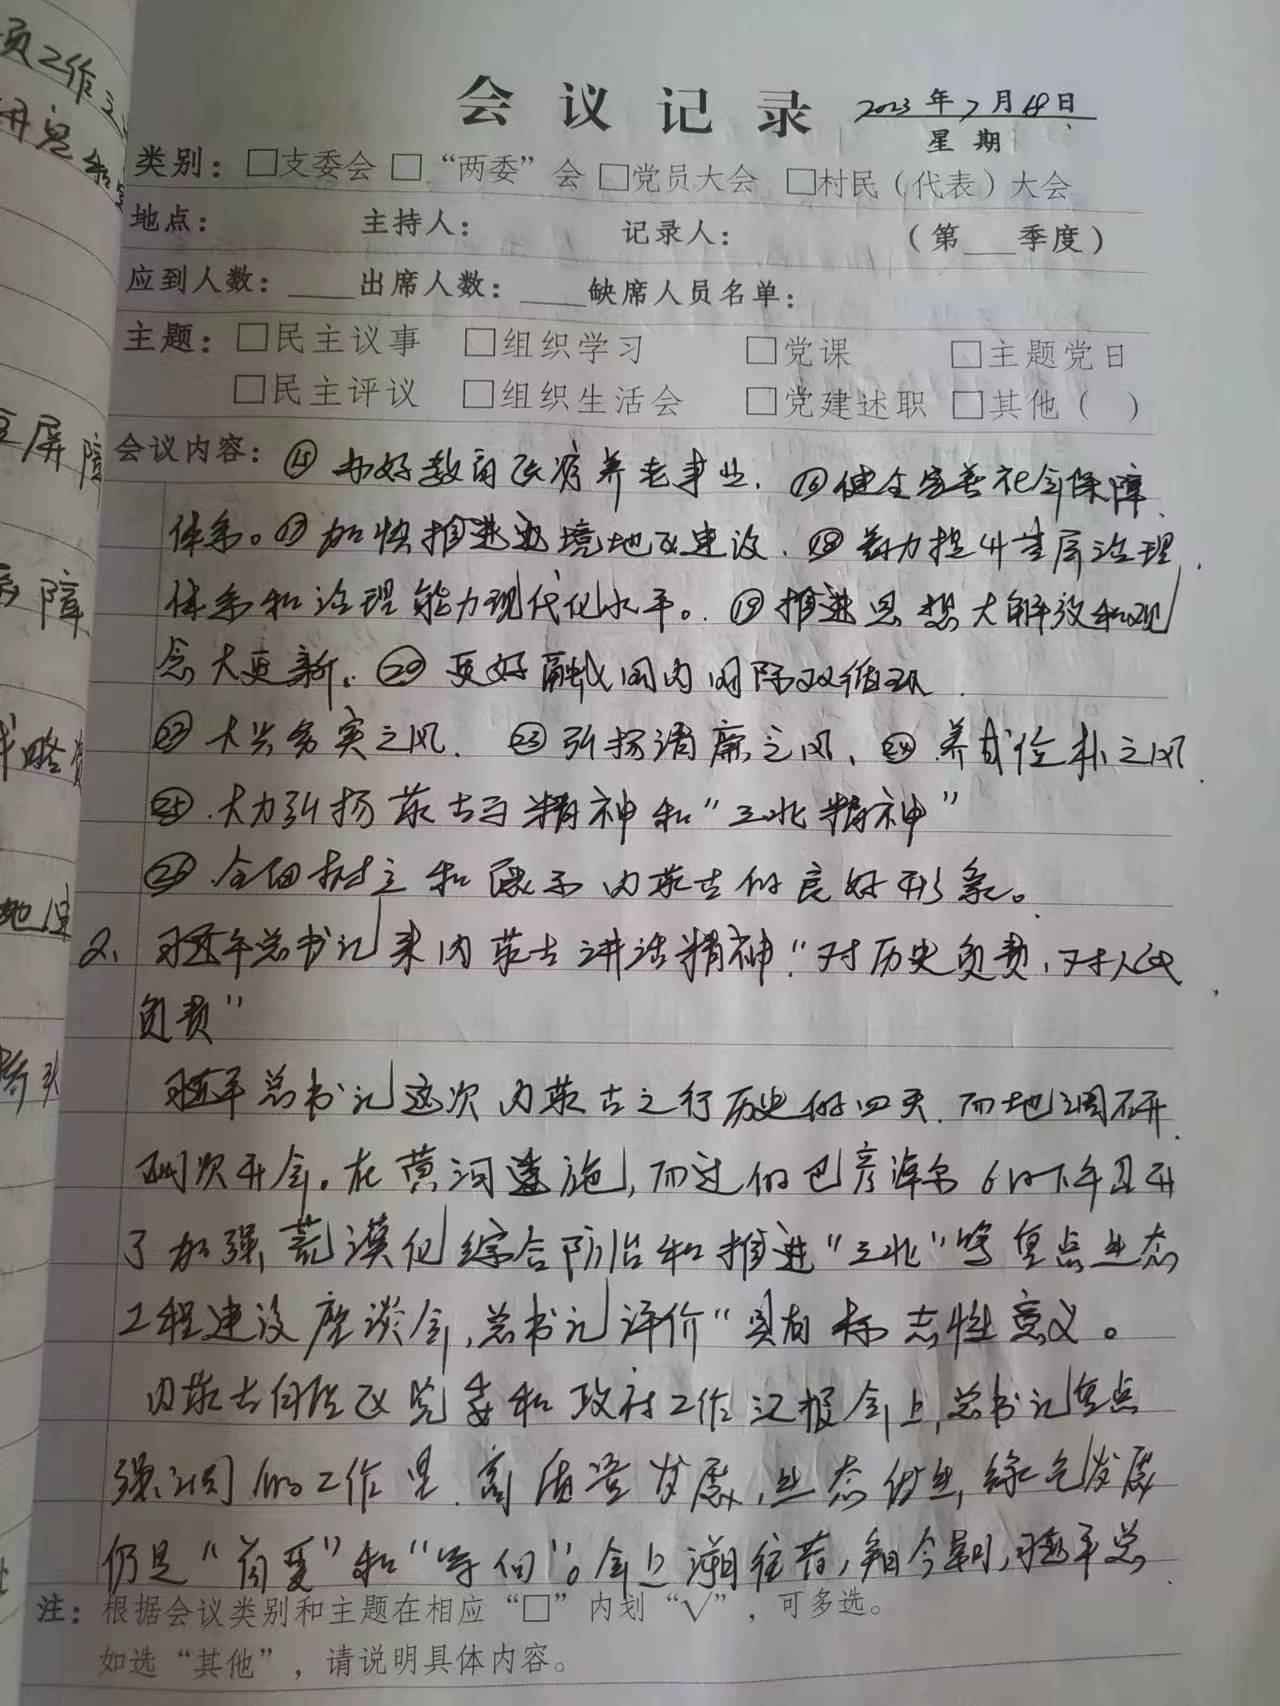 会议记录 2023年7月18日
星期
类别：□支委会 □“两委”会 □党员大会 □村民（代表）大会
地点： 主持人： 记录人： （第___季度）
应到人数：____出席人数：____缺席人员名单：
主题：□民主议事 □组织学习 □党课 □主题党日
□民主评议 □组织生活会 □党建述职 □其他（ ）
会议内容：⑮办好教育医疗养老事业、⑯健全完善社会保障
体系。⑰加快推进边境地区建设、⑱着力提升基层治理
体系和治理能力现代化水平。⑲推进思想大解放和观
念大更新、⑳更好融入国内国际双循环
㉒大兴务实之风、㉓弘扬清廉之风、㉔养成俭朴之风
㉕大力弘扬蒙古马精神和“三北精神”
㉖全面树立和展示内蒙古的良好形象。
2、习近平总书记来内蒙古讲话精神“对历史负责，对人民
负责”
习近平总书记这次内蒙古之行历史的四天、两地调研
两次开会。在黄河 而过的巴彦淖尔 6日下午召开
了加强荒漠化综合防治和推进“三北”等重点生态
工程建设座谈会，总书记评价“具有标志性意义。
内蒙古自治区党委和政府工作汇报会上，总书记重点
强调的工作是、高质量发展，生态优先，绿色发展
仍是“首要”和“导向”。会上溯往昔， 今朝，习近平总
注：根据会议类别和主题在相应“□”内划“√”，可多选。
如选“其他”，请说明具体内容。